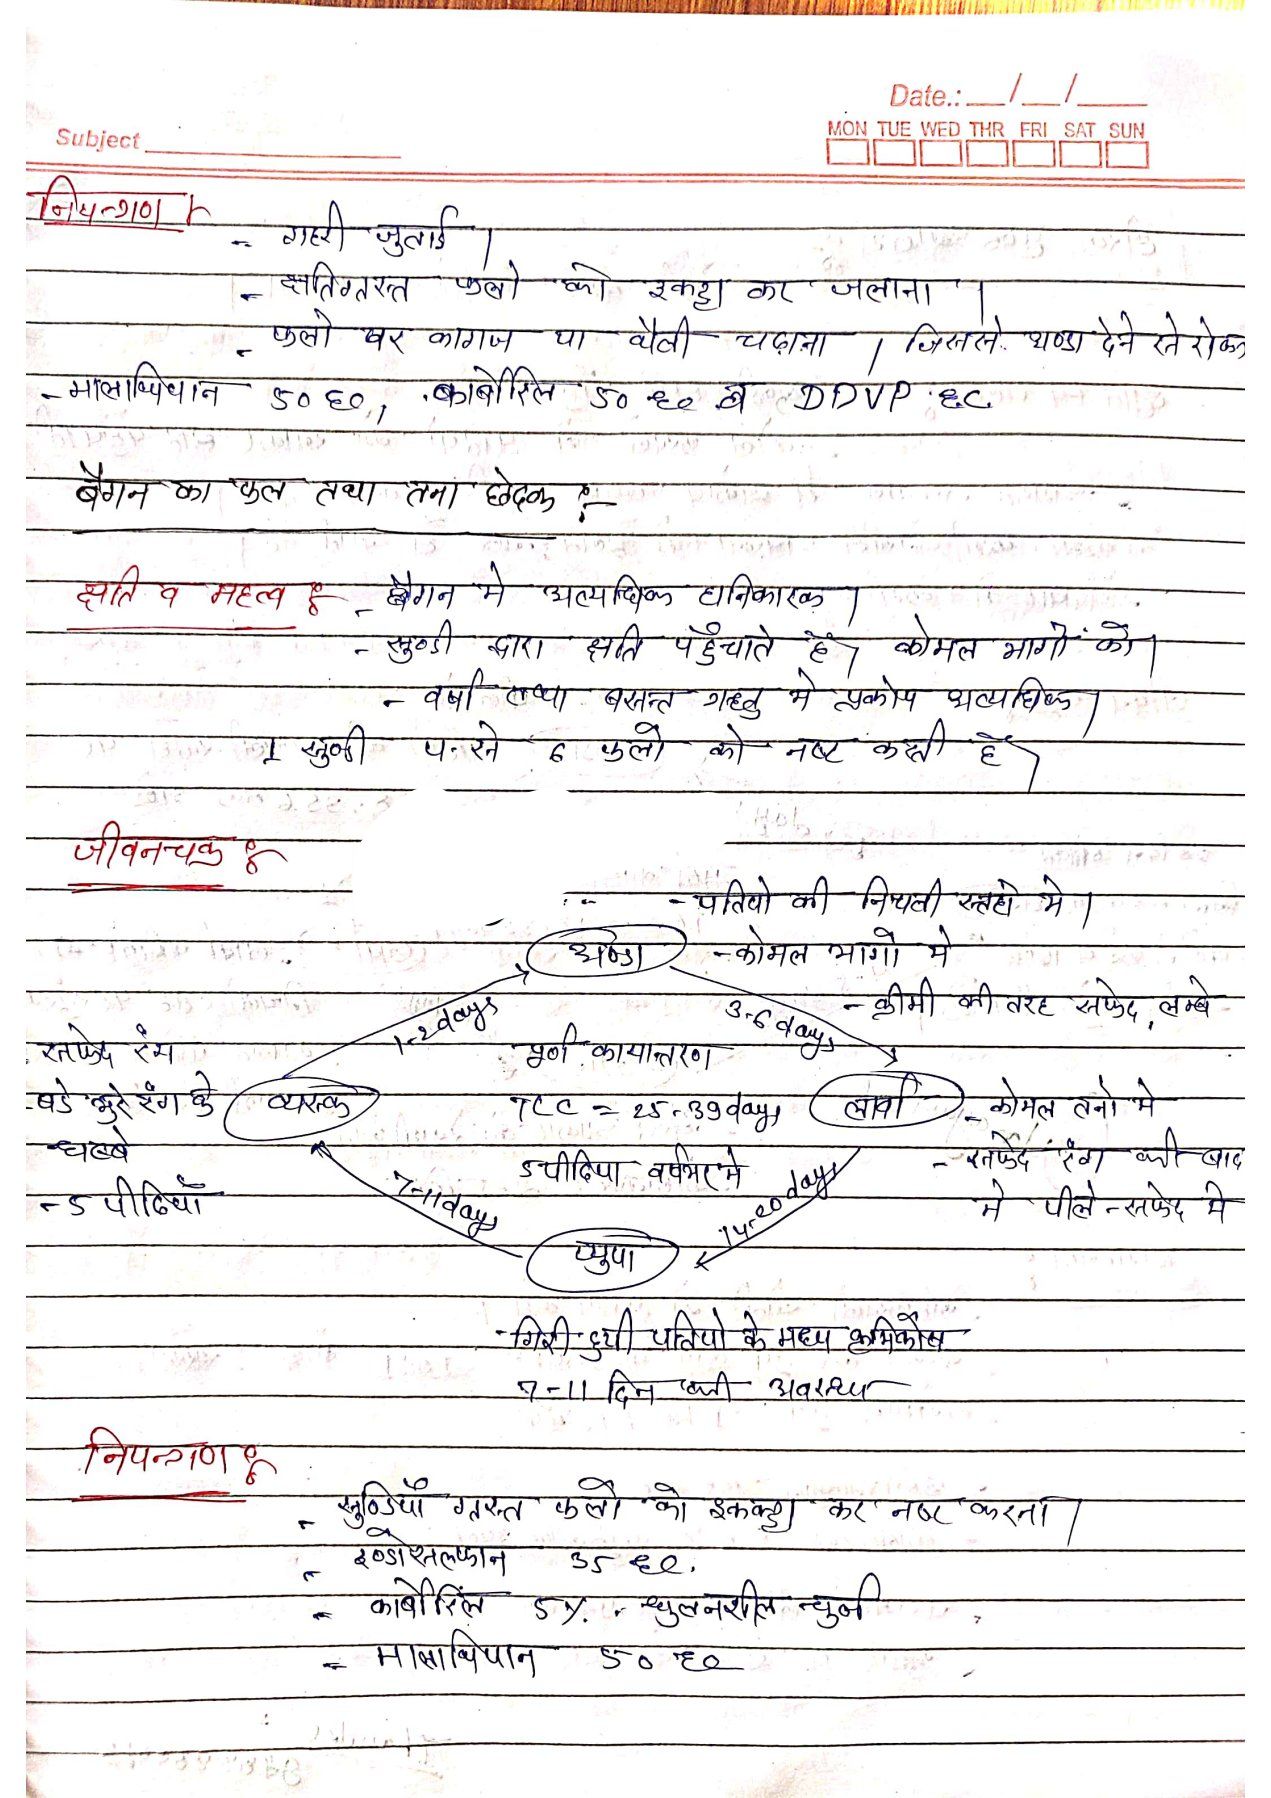 Date.: __/__/____
MON TUE WED THR FRI SAT SUN
Subject
नियन्त्रण :-
- गहरी जुताई |
- क्षतिग्रस्त फलो को इकट्ठा कर जलाना |
- फलो पर कागज या थैली चढ़ाना | जिससे अण्डा देने से रोक
- मालाथियान 50 EC, कार्बोरिल 50 EC व DDVP EC
बैगन का फल तथा तना छेदक :-
क्षति व महत्व :- - बैगन मे अत्याधिक हानिकारक |
- सुण्डी द्वारा क्षति पहुँचाते है, कोमल भागो को |
- वर्षा तथा बसन्त ऋतु मे प्रकोप अत्याधिक |
1 सुण्डी 6 फलो को नष्ट करती है,
जीवनचक्र :-
- पतियो की निचली सतहो मे |
अण्डा - कोमल भागो मे
- क्रीमी की तरह सफेद, लम्बे
1-2 days
3-6 days
पूर्ण कायान्तरण
- सफेद रंग
- बडे भुरे रंग के धब्बे
- 5 पीढियाँ
व्यस्क
TCC = 25-39 days
5 पीढिया वर्षभर मे
लार्वा - कोमल तनो मे
- सफेद रंग की बाद
मे पीले - सफेद मे
7-11 days
14-20 days
प्युपा
- गिरी हुयी पतियो के मध्य कृमिकोष
7-11 दिन की अवस्था
नियन्त्रण :-
- सुण्डियाँ ग्रस्त फलो को इकक्ट्ठा कर नष्ट करना |
- इण्डोसल्फान 35 EC.
- कार्बोरिल 5% - घुलनशील चुर्ण
- मालाथियान 50 EC